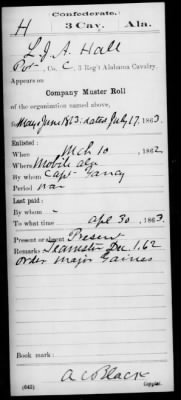 Confederate.
H 3 Cav. Ala.
L. J. A. Hall
Pvt, Co. C, 3 Reg't Alabama Cavalry.
Appears on
Company Muster Roll
of the organization named above,
for May & June 1863: dated July 17, 1863.
Enlisted:
When Mch 10, 1862
Where Mobile Ala
By whom Capt Yancy
Period war
Last paid:
By whom -
To what time Apl 30, 1863.
Present or absent Present
Remarks: Teamster Dec. 1. 62
order Major Gaines
Book mark:
A C Black
(642) Copyist.